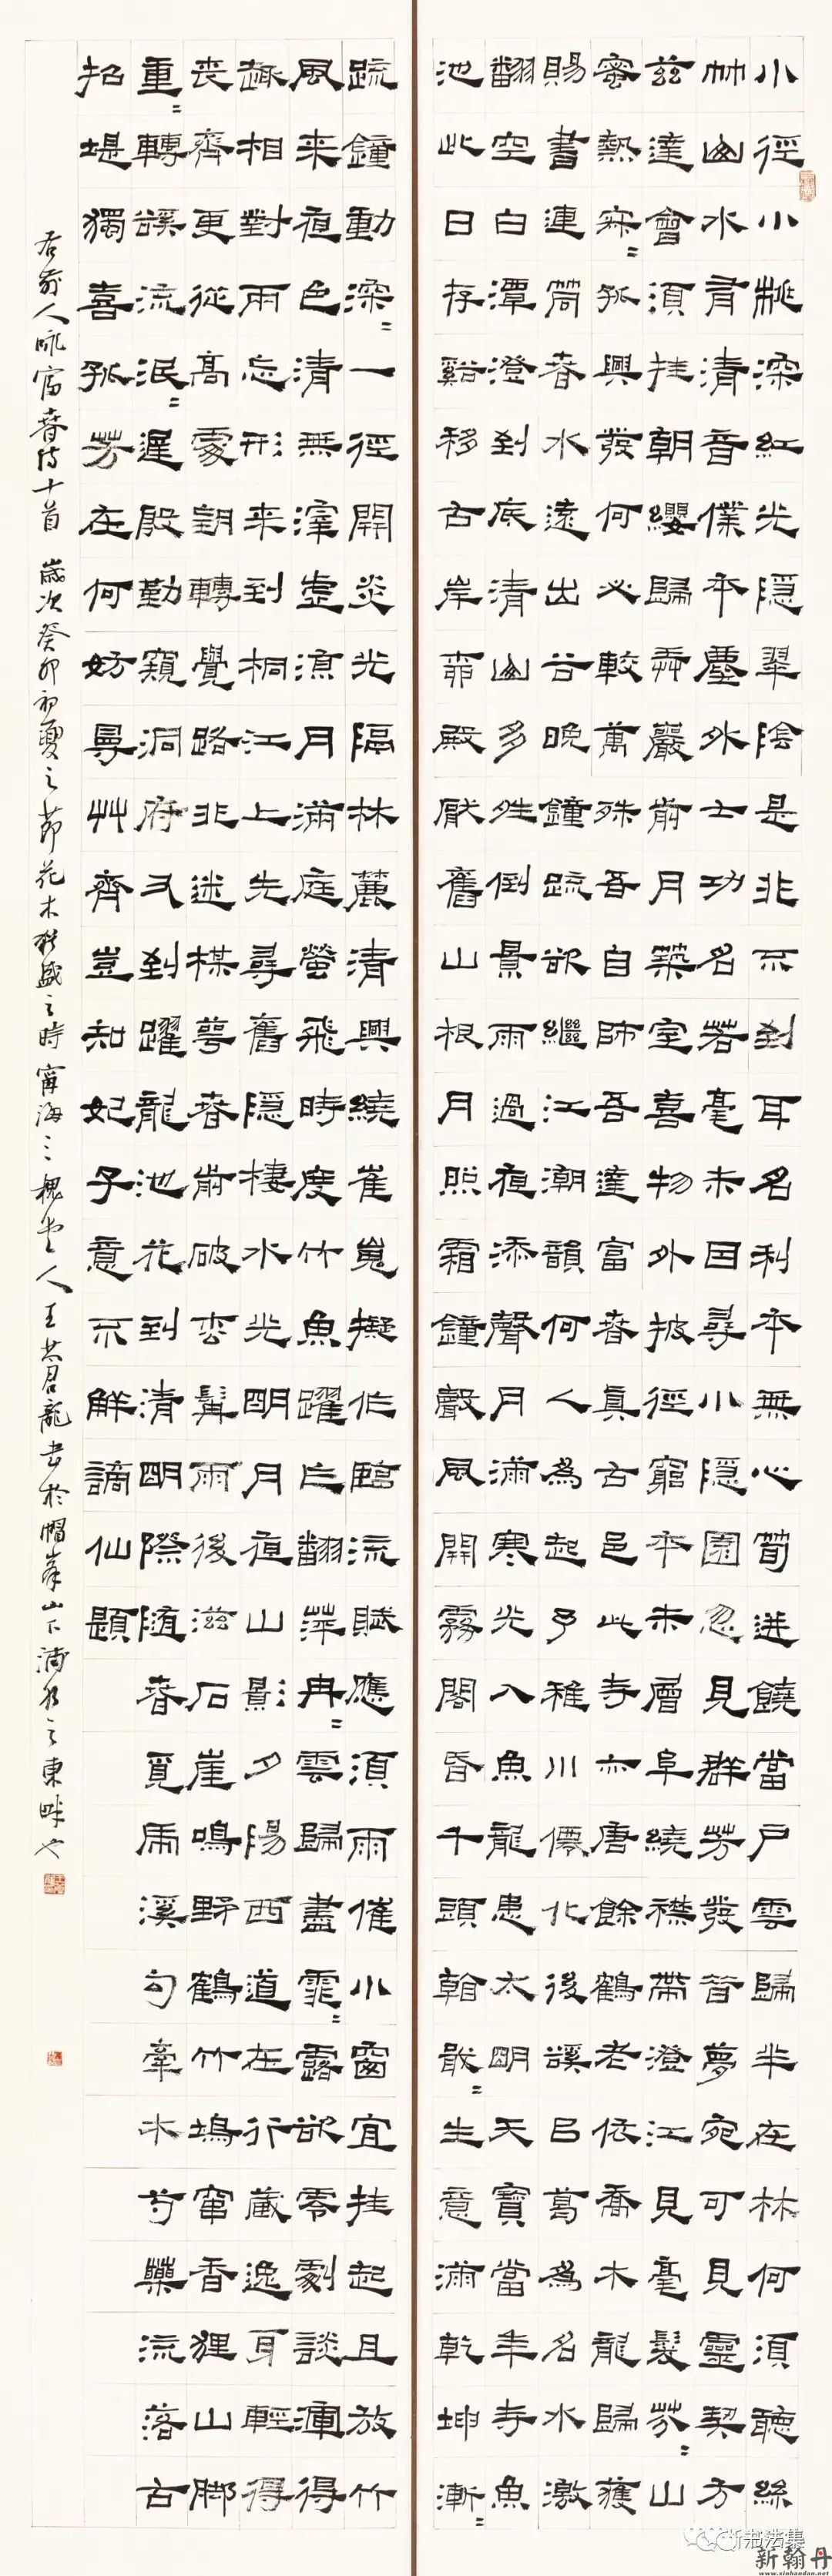 小徑小桃深紅光隱翠陰是非不到耳名利平無心筍迸饒當戶雲歸半在林何須聽絲
竹山水有清音僕平塵外士功名若毫未田尋小隱園忽見群芳發皆夢宛可見靈契方
茲達會須挂朝纓歸舜巖前月築室喜物外披徑窮平未層阜繞襟帶澄江見毫髮芥=山
蜜熱寐=孤興發何必較萬殊吾自師吾達富春真古邑此寺亦唐餘鶴老依喬木龍歸獲
賜書連筒春水遠出谷晚鐘疏欲繼江潮韻何人為起予稚川僊化後谿呂葛為名水激
翻空白潭澄到底清幽多姓倒景雨過夜添聲月滿寒光入魚龍患太明天寶當年寺魚
池此日存谿移古岸殿厭舊山根月照霜鐘聲風開霧閣昏千頭翰戢=生意滿乾坤漸=
疏鐘動深=一徑開炎光隔林麓清興繞崔嵬擬作臨流賦應須雨催小窗宜挂起且放竹
風来夜色清無滓虛涼月滿庭螢飛時度竹魚躍亡翻萍冉=雲歸盡霏=露欲零劇談渾得
趣相對兩忘形来到桐江上先尋舊隱棲水光明月夜山影夕陽西道在行藏逸身輕得
喪齊更從高處望轉覺路非迷楳萼春前破杏鬅雨後滋石崖鳴野鶴竹塢竄香狸山腳
重=轉谿流泯=遲殷勤窺洞府又到躍龍池花到清明際隨春覓虎溪句牽木芍藥流落古
招堤獨喜孤芳在何妨蔓艸齊豈知妃子意不解謫仙題
右前人咏富春詩十首 歲次癸卯初夏之節花木秾盛之時甯海三槐堂人王共君龍書於帽峯山下浦水之東畔也
新书法集
新翰丹
www.xinhandan.net